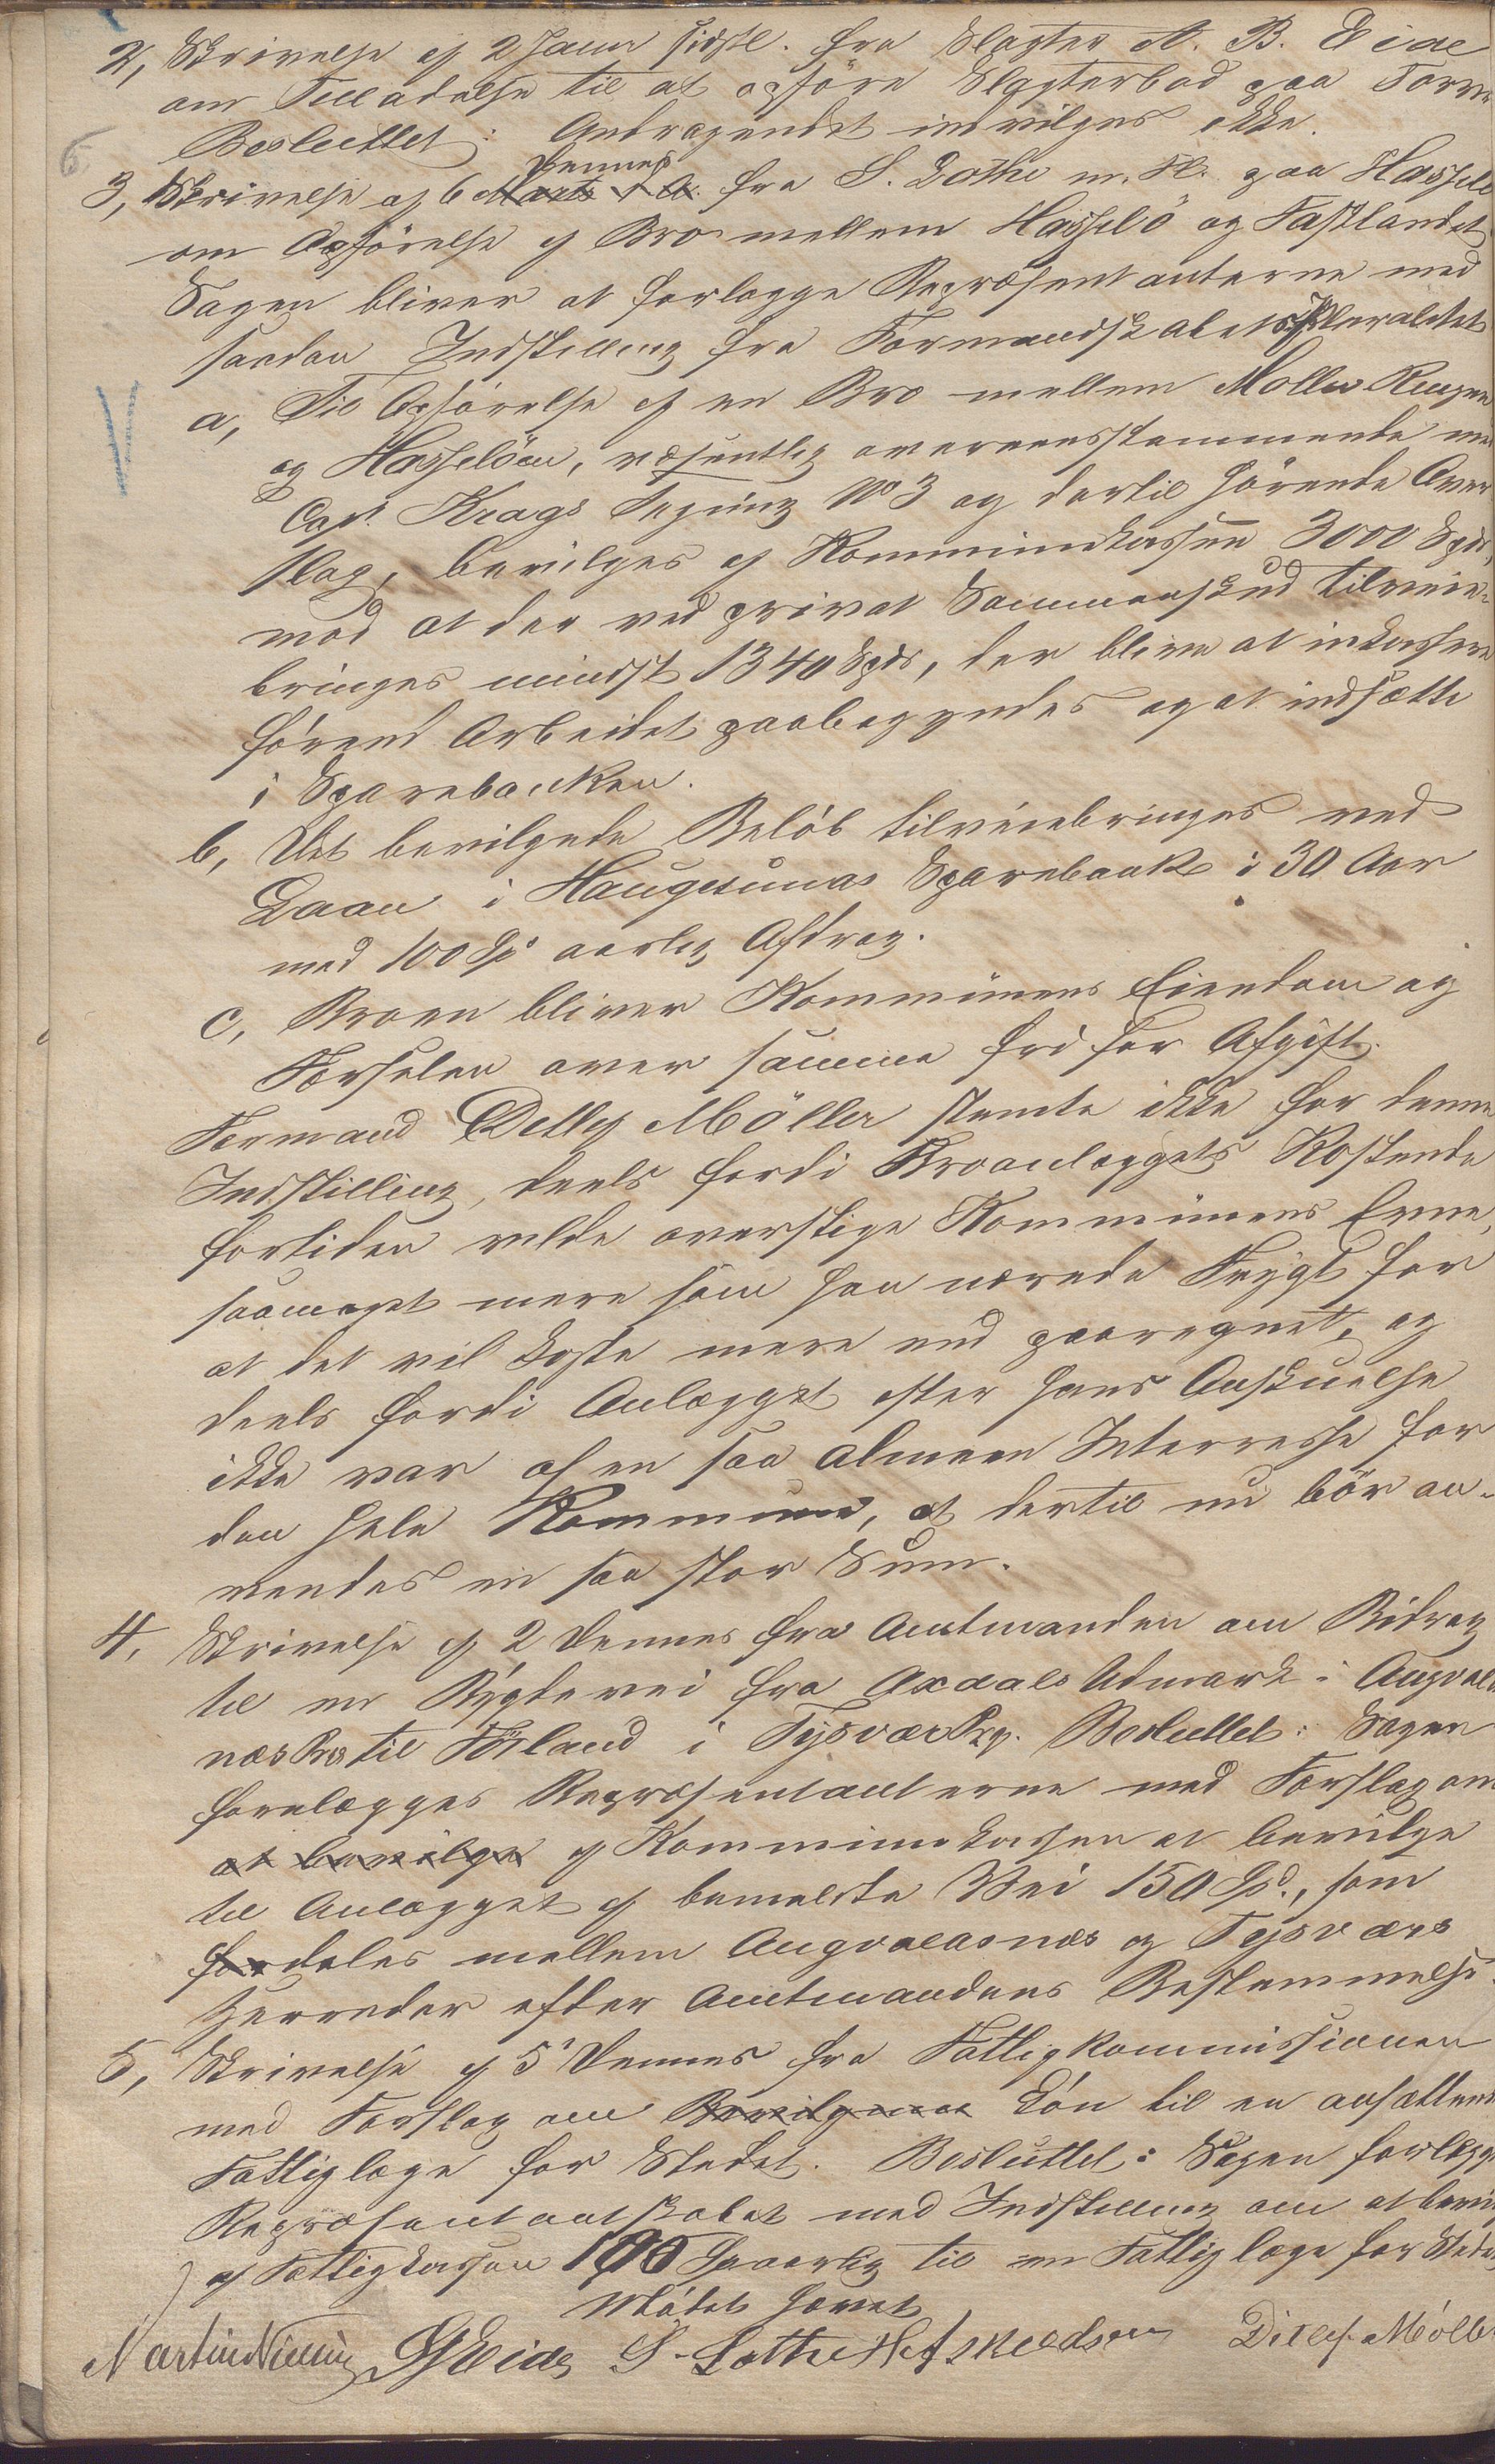 2, Skrivelse af 2 Janr sidstl. fra Slagter A. B. Eide
om Tilladelse til at opföre Slagterbod paa Torve
Besluttet: Andragendet indvilges ikke.
6
Dennes
3, Skrivelse af 6 Marts d. A. fra S. Lothe m. Fl. paa Hasselö
om Opförelse af Bro mellem Hasselö og Fastlandet
Sagen bliver at forlægge Repræsentanterne med
saadan Indstilling fra Formandskabets Pluralitet
a, Til Opförelse af en Bro mellem
og Hasselöen, væsentlig overeensstemmende med
Capt. Krags Tegning No 3 og dertil hörende Over
slag, bevilges af Kommunekassen 3000 Spdr,
mod at der ved privat Sammenskud tilveie-
bringes mindst 1340 Spdr, der blive at inkassere
förend Arbeidet paabegyndes og at indsætte
i Sparebanken.
b, Det bevilgede Belöb tilveiebringes ved
Laan i Haugesunds Sparebank i 30 Aar
med 100 Sp aarlig Afdrag.
c, Broen bliver Kommunens Eiendom og
Færselen over samme fri for Afgift.
Formand Detlef Möller stemte ikke for denne
Indstilling, deels fordi Broanlæggets Kostende
fortiden vilde overstige Kommunens Evne,
saameget mere som han nærede Frygt for
at det vil koste mere end paaregnet, og
deels fordi Anlægget efter hans Anskuelse
ikke var af en saa almeen Interresse for
den hele Kommune, at dertil nu bör an-
vendes en saa stor Sum.
4, Skrivelse af 2 Dennes fra Amtmanden om Bidrag
til en Bygdevei fra Aксdals Udmark i Augvalds
næs Prg til Förland i Tysvær Prg. Besluttet: Sagen
forelægges Repræsentanterne med Forslag om
at bevilge af Kommunekassen at bevilge
til Anlægget af bemeldte Vei 150 Spd., som
fordeles mellem Augvaldsnæs og Tysværs
Herreder efter Amtmandens Bestemmelse.
5, Skrivelse af 5 Dennes fra Fattigkommissionen
med Forslag om Lön til en ansættende
Fattiglæge for Stedet. Besluttet: Sagen forlægges
Repræsentantskabet med Indstilling om at bevilge
af Fattigkassen 100 Sp aarlig til en Fattiglæge for Stedet
Mödet hævet
S. Lothe H Askeldsen Ditlef Möller